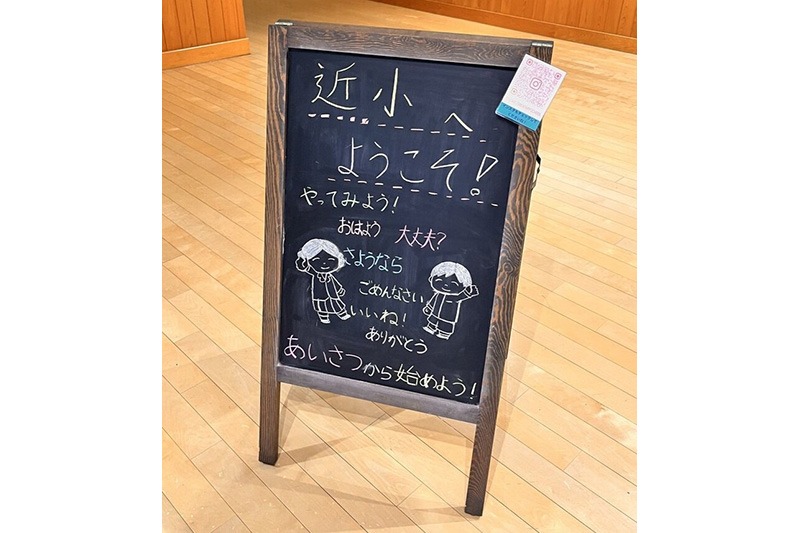 近小へ
ようこそ!
やってみよう!
おはよう 大丈夫?
さようなら
ごめんなさい
いいね!
ありがとう
あいさつから始めよう!